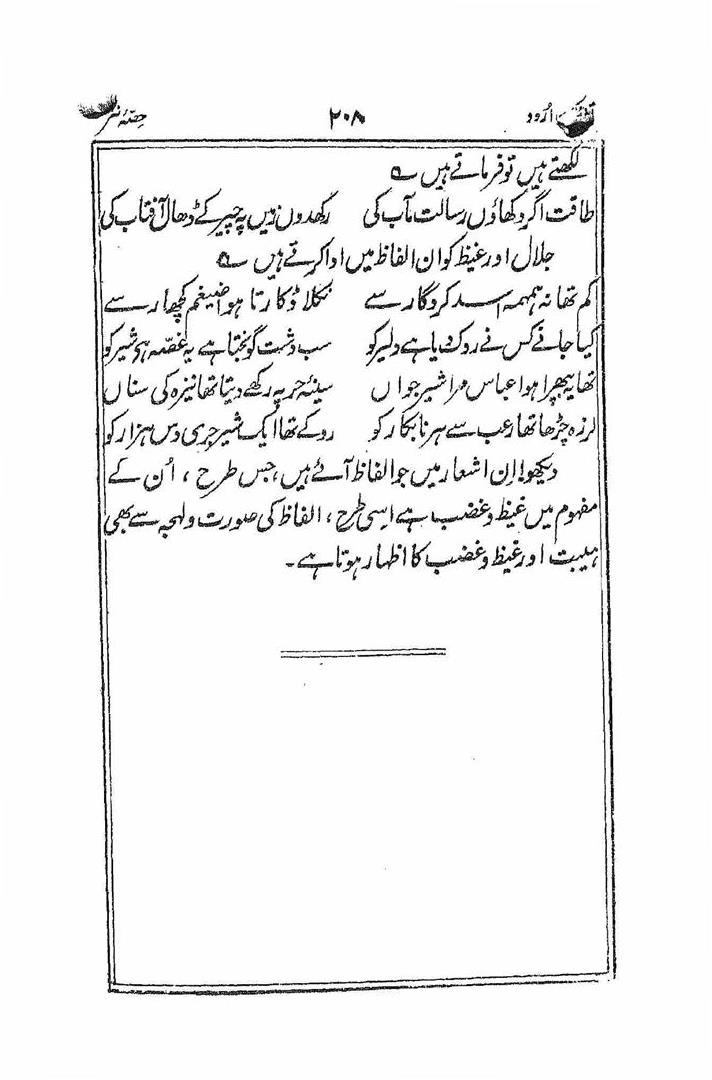 اُردو ۲۰۸ حصّۂ نثر
لکھتے ہیں تو فرماتے ہیں ؎
طاقت اگر دکھاؤں رسالت مآب کی رکھدوں زمیں پہ چیر کے ڈھال آفتاب کی
جلال اور غیظ کو ان الفاظ میں ادا کرتے ہیں ؎
کم تھا نہ ہمہمہ اسد کردگار سے نکلا ڈکارتا ہوا ضیغم کچھار سے
کیا جانے کس نے روک دیا ہے دلیر کو سب دشت گونجتا ہے یہ غصّہ ہی شیر کو
تھا یہ بپھرا ہوا عباس مرا شیر جواں سینۂ حر پہ رکھے دیتا تھا نیزہ کی سناں
لرزہ چڑھا تھا رعب سے ہر نابکار کو روکے تھا ایک شیر جری دس ہزار کو
دیکھو! ان اشعار میں جو الفاظ آئے ہیں، جس طرح، اُن کے
مفہوم میں غیظ و غضب ہے اسی طرح، الفاظ کی صورت و لہجہ سے بھی
ہیبت اور غیظ و غضب کا اظہار ہوتا ہے۔